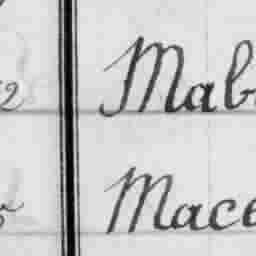 Mab
Mace